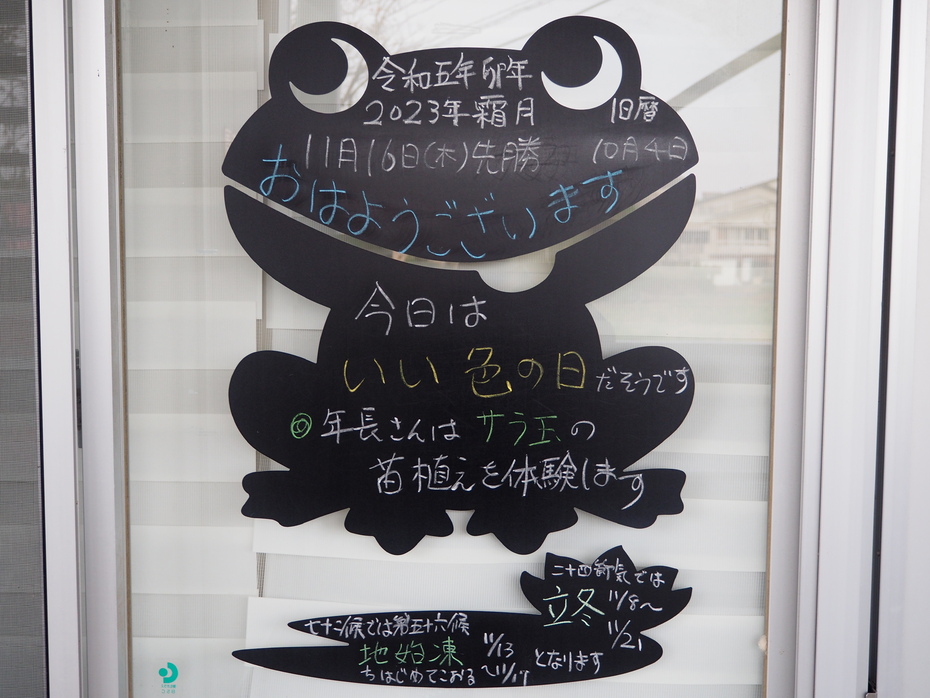 令和五年卯年
2023年霜月 旧暦
11月16日(木)先勝 10月4日
おはようございます
今日は
いい色の日だそうです
◎年長さんはサラ玉の
苗植えを体験します
二十四節気では
立冬 11/8〜
11/21
七十二候では第五十六候
地始凍 11/13
ちはじめてこおる 〜11/17
となります